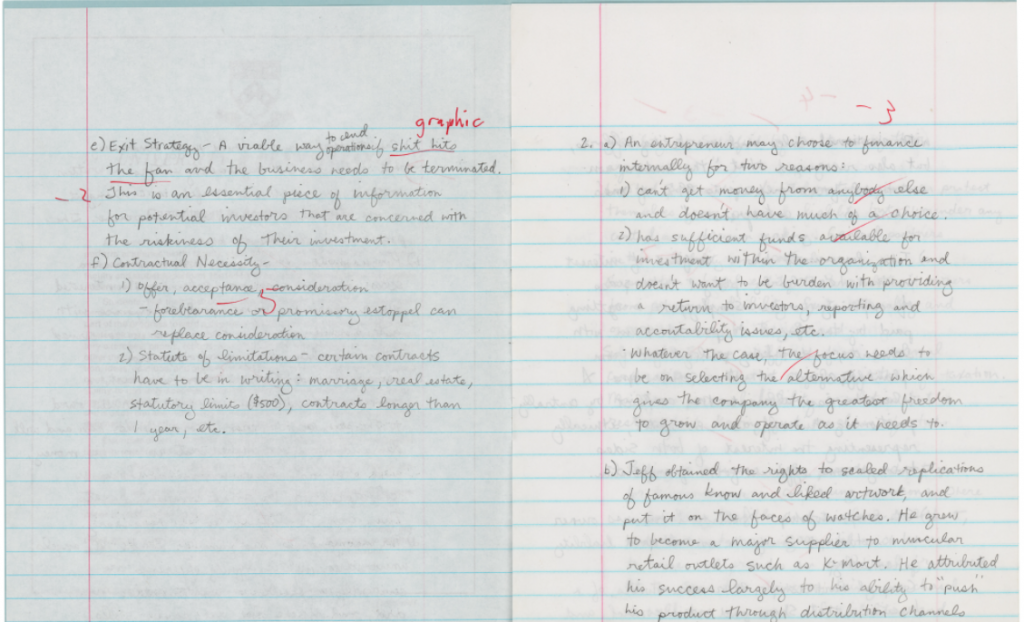 graphic
to end
e) Exit Strategy - A viable way operations if shit hits
the fan and the business needs to be terminated.
-2 This is an essential piece of information
for potential investors that are concerned with
the riskiness of their investment.
f) Contractual Necessity -
1) offer, acceptance, consideration
- forebearance or promissory estoppel can
replace consideration
2) Statute of limitations - certain contracts
have to be in writing: marriage, real estate,
statutory limits ($500), contracts longer than
1 year, etc.
-3
2. a) An entrepreneur may choose to finance
internally for two reasons:
1) can't get money from anybody else
and doesn't have much of a choice.
2) has sufficient funds available for
investment within the organization and
doesn't want to be burden with providing
a return to investors, reporting and
accountability issues, etc.
· Whatever the case, the focus needs to
be on selecting the alternative which
gives the company the greatest freedom
to grow and operate as it needs to.
b) Jeff obtained the rights to scaled replications
of famous know and liked artwork, and
put it on the faces of watches. He grew
to become a major supplier to
retail outlets such as K-mart. He attributed
his success largely to his ability to "push"
his product through distribution channels